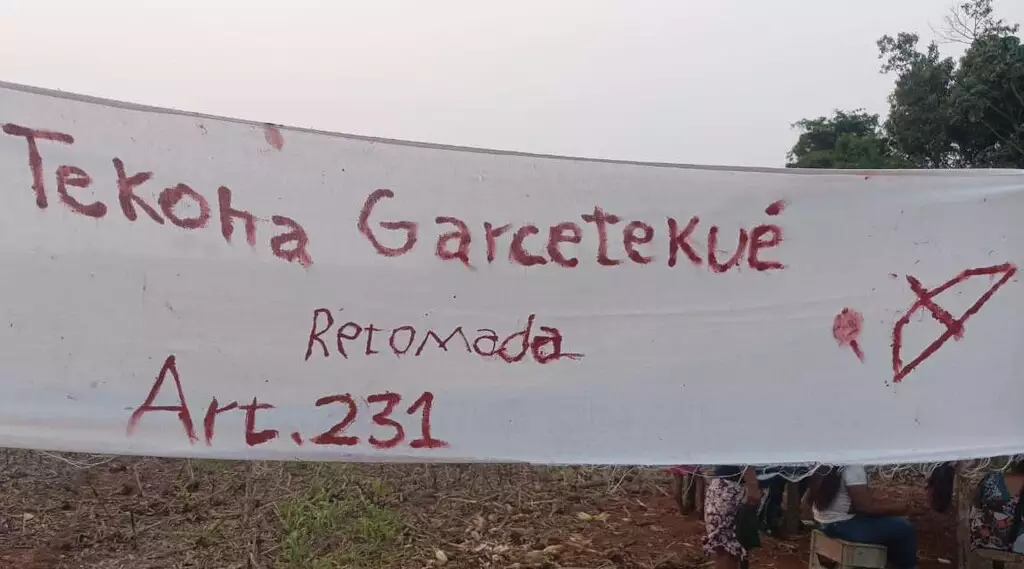 Tekoha Garcetekué
Retomada
Art. 231